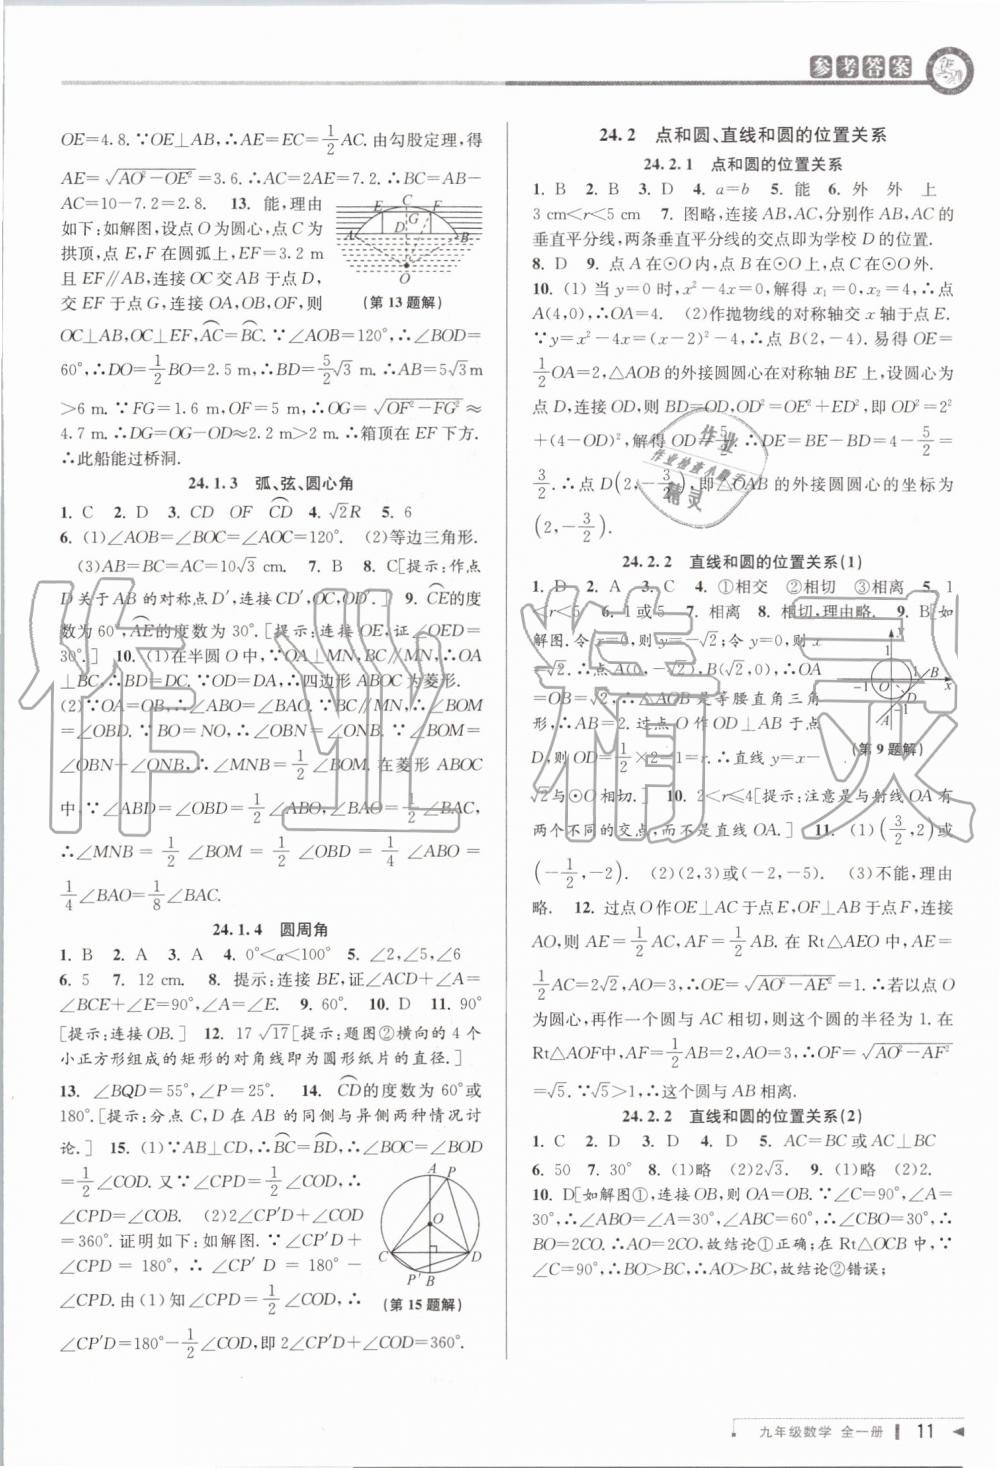 参考答案
OE=4.8. ∵OE⊥AB,∴AE=EC=1/2AC. 由勾股定理,得
AE=√(AO²-OE²)=3.6. ∴AC=2AE=7.2. ∴BC=AB-
AC=10-7.2=2.8. 13. 能,理由
如下:如解图,设点O为圆心,点C为
拱顶,点E,F在圆弧上,EF=3.2 m
且EF∥AB,连接OC交AB于点D,
交EF于点G,连接OA,OB,OF,则
(第13题解)
OC⊥AB,OC⊥EF,AC⌒=BC⌒. ∵∠AOB=120°,∴∠BOD=
60°,∴DO=1/2BO=2.5 m,∴BD=5/2√3 m. ∴AB=5√3 m
>6 m. ∵FG=1.6 m,OF=5 m,∴OG=√(OF²-FG²)≈
4.7 m. ∴DG=OG-OD≈2.2 m>2 m. ∴箱顶在EF下方.
∴此船能过桥洞.
24.1.3 弧、弦、圆心角
1. C 2. D 3. CD OF CD⌒ 4. √2R 5. 6
6. (1)∠AOB=∠BOC=∠AOC=120°. (2)等边三角形.
(3)AB=BC=AC=10√3 cm. 7. B 8. C[提示:作点
D关于AB的对称点D′,连接CD′,OC,OD′.] 9. CE⌒的度
数为60°,AE⌒的度数为30°.[提示:连接OE,证∠OED=
30°.] 10. (1)在半圆O中,∵OA⊥MN,BC∥MN,∴OA
⊥BC,∴BD=DC. ∵OD=DA,∴四边形ABOC为菱形.
(2)∵OA=OB,∴∠ABO=∠BAO. ∵BC∥MN,∴∠BOM
=∠OBN. ∵BO=NO,∴∠OBN=∠ONB. ∵∠BOM=
∠OBN+∠ONB,∴∠MNB=1/2∠BOM. 在菱形ABOC
中,∵∠ABD=∠OBD=1/2∠ABO,∠BAO=1/2∠BAC,
∴∠MNB=1/2∠BOM=1/2∠OBD=1/4∠ABO=
1/4∠BAO=1/8∠BAC.
24.1.4 圆周角
1. B 2. A 3. A 4. 0°<α<100° 5. ∠2,∠5,∠6
6. 5 7. 12 cm. 8. 提示:连接BE,证∠ACD+∠A=
∠BCE+∠E=90°,∠A=∠E. 9. 60°. 10. D 11. 90°
[提示:连接OB.] 12. 17 √17[提示:题图②横向的4个
小正方形组成的矩形的对角线即为圆形纸片的直径.]
13. ∠BQD=55°,∠P=25°. 14. CD⌒的度数为60°或
180°.[提示:分点C,D在AB的同侧与异侧两种情况讨
论.] 15. (1)∵AB⊥CD,∴BC⌒=BD⌒,∴∠BOC=∠BOD
=1/2∠COD. 又∵∠CPD=1/2∠COD,∴
∠CPD=∠COB. (2)2∠CP′D+∠COD
=360°. 证明如下:如解图. ∵∠CP′D+
∠CPD=180°,∴∠CP′D=180°-
∠CPD. 由(1)知∠CPD=1/2∠COD,∴
(第15题解)
∠CP′D=180°-1/2∠COD,即2∠CP′D+∠COD=360°.
24.2 点和圆、直线和圆的位置关系
24.2.1 点和圆的位置关系
1. B 2. B 3. D 4. a=b 5. 能 6. 外 外 上
3 cm<r<5 cm 7. 图略,连接AB,AC,分别作AB,AC的
垂直平分线,两条垂直平分线的交点即为学校D的位置.
8. D 9. 点A在⊙O内,点B在⊙O上,点C在⊙O外.
10. (1)当y=0时,x²-4x=0,解得x₁=0,x₂=4,∴点
A(4,0),∴OA=4. (2)作抛物线的对称轴交x轴于点E.
∵y=x²-4x=(x-2)²-4,∴点B(2,-4). 易得OE=
1/2OA=2,△AOB的外接圆圆心在对称轴BE上,设圆心为
点D,连接OD,则BD=OD,OD²=OE²+ED²,即OD²=2²
+(4-OD)²,解得OD=5/2. ∴DE=BE-BD=4-5/2=
3/2. ∴点D(2,-3/2),即△OAB的外接圆圆心的坐标为
(2,-3/2).
24.2.2 直线和圆的位置关系(1)
1. D 2. A 3. C 4. ①相交 ②相切 ③相离 5. 1
<r<5 6. 1或5 7. 相离 8. 相切,理由略. 9. B[如
解图. 令x=0,则y=-√2;令y=0,则x
=√2. ∴点A(0,-√2),B(√2,0),∴OA
=OB=√2. ∴△AOB是等腰直角三角
形,∴AB=2. 过点O作OD⊥AB于点
D,则OD=1/2×2=1=r. ∴直线y=x-
(第9题解)
√2与⊙O相切.] 10. 2<r≤4[提示:注意是与射线OA有
两个不同的交点,而不是直线OA.] 11. (1)(3/2,2)或
(-1/2,-2). (2)(2,3)或(-2,-5). (3)不能,理由
略. 12. 过点O作OE⊥AC于点E,OF⊥AB于点F,连接
AO,则AE=1/2AC,AF=1/2AB. 在Rt△AEO中,AE=
1/2AC=2√2,AO=3,∴OE=√(AO²-AE²)=1. ∴若以点O
为圆心,再作一个圆与AC相切,则这个圆的半径为1. 在
Rt△AOF中,AF=1/2AB=2,AO=3,∴OF=√(AO²-AF²)
=√5. ∵√5>1,∴这个圆与AB相离.
24.2.2 直线和圆的位置关系(2)
1. C 2. D 3. D 4. D 5. AC=BC或AC⊥BC
6. 50 7. 30° 8. (1)略 (2)2√3. 9. (1)略 (2)2.
10. D[如解图①,连接OB,则OA=OB. ∵∠C=90°,∠A=
30°,∴∠ABO=∠A=30°,∠ABC=60°,∴∠CBO=30°,∴
BO=2CO. ∴AO=2CO,故结论①正确;在Rt△OCB中,∵
∠C=90°,∴BO>BC,∴AO>BC,故结论②错误;
九年级数学 全一册 11